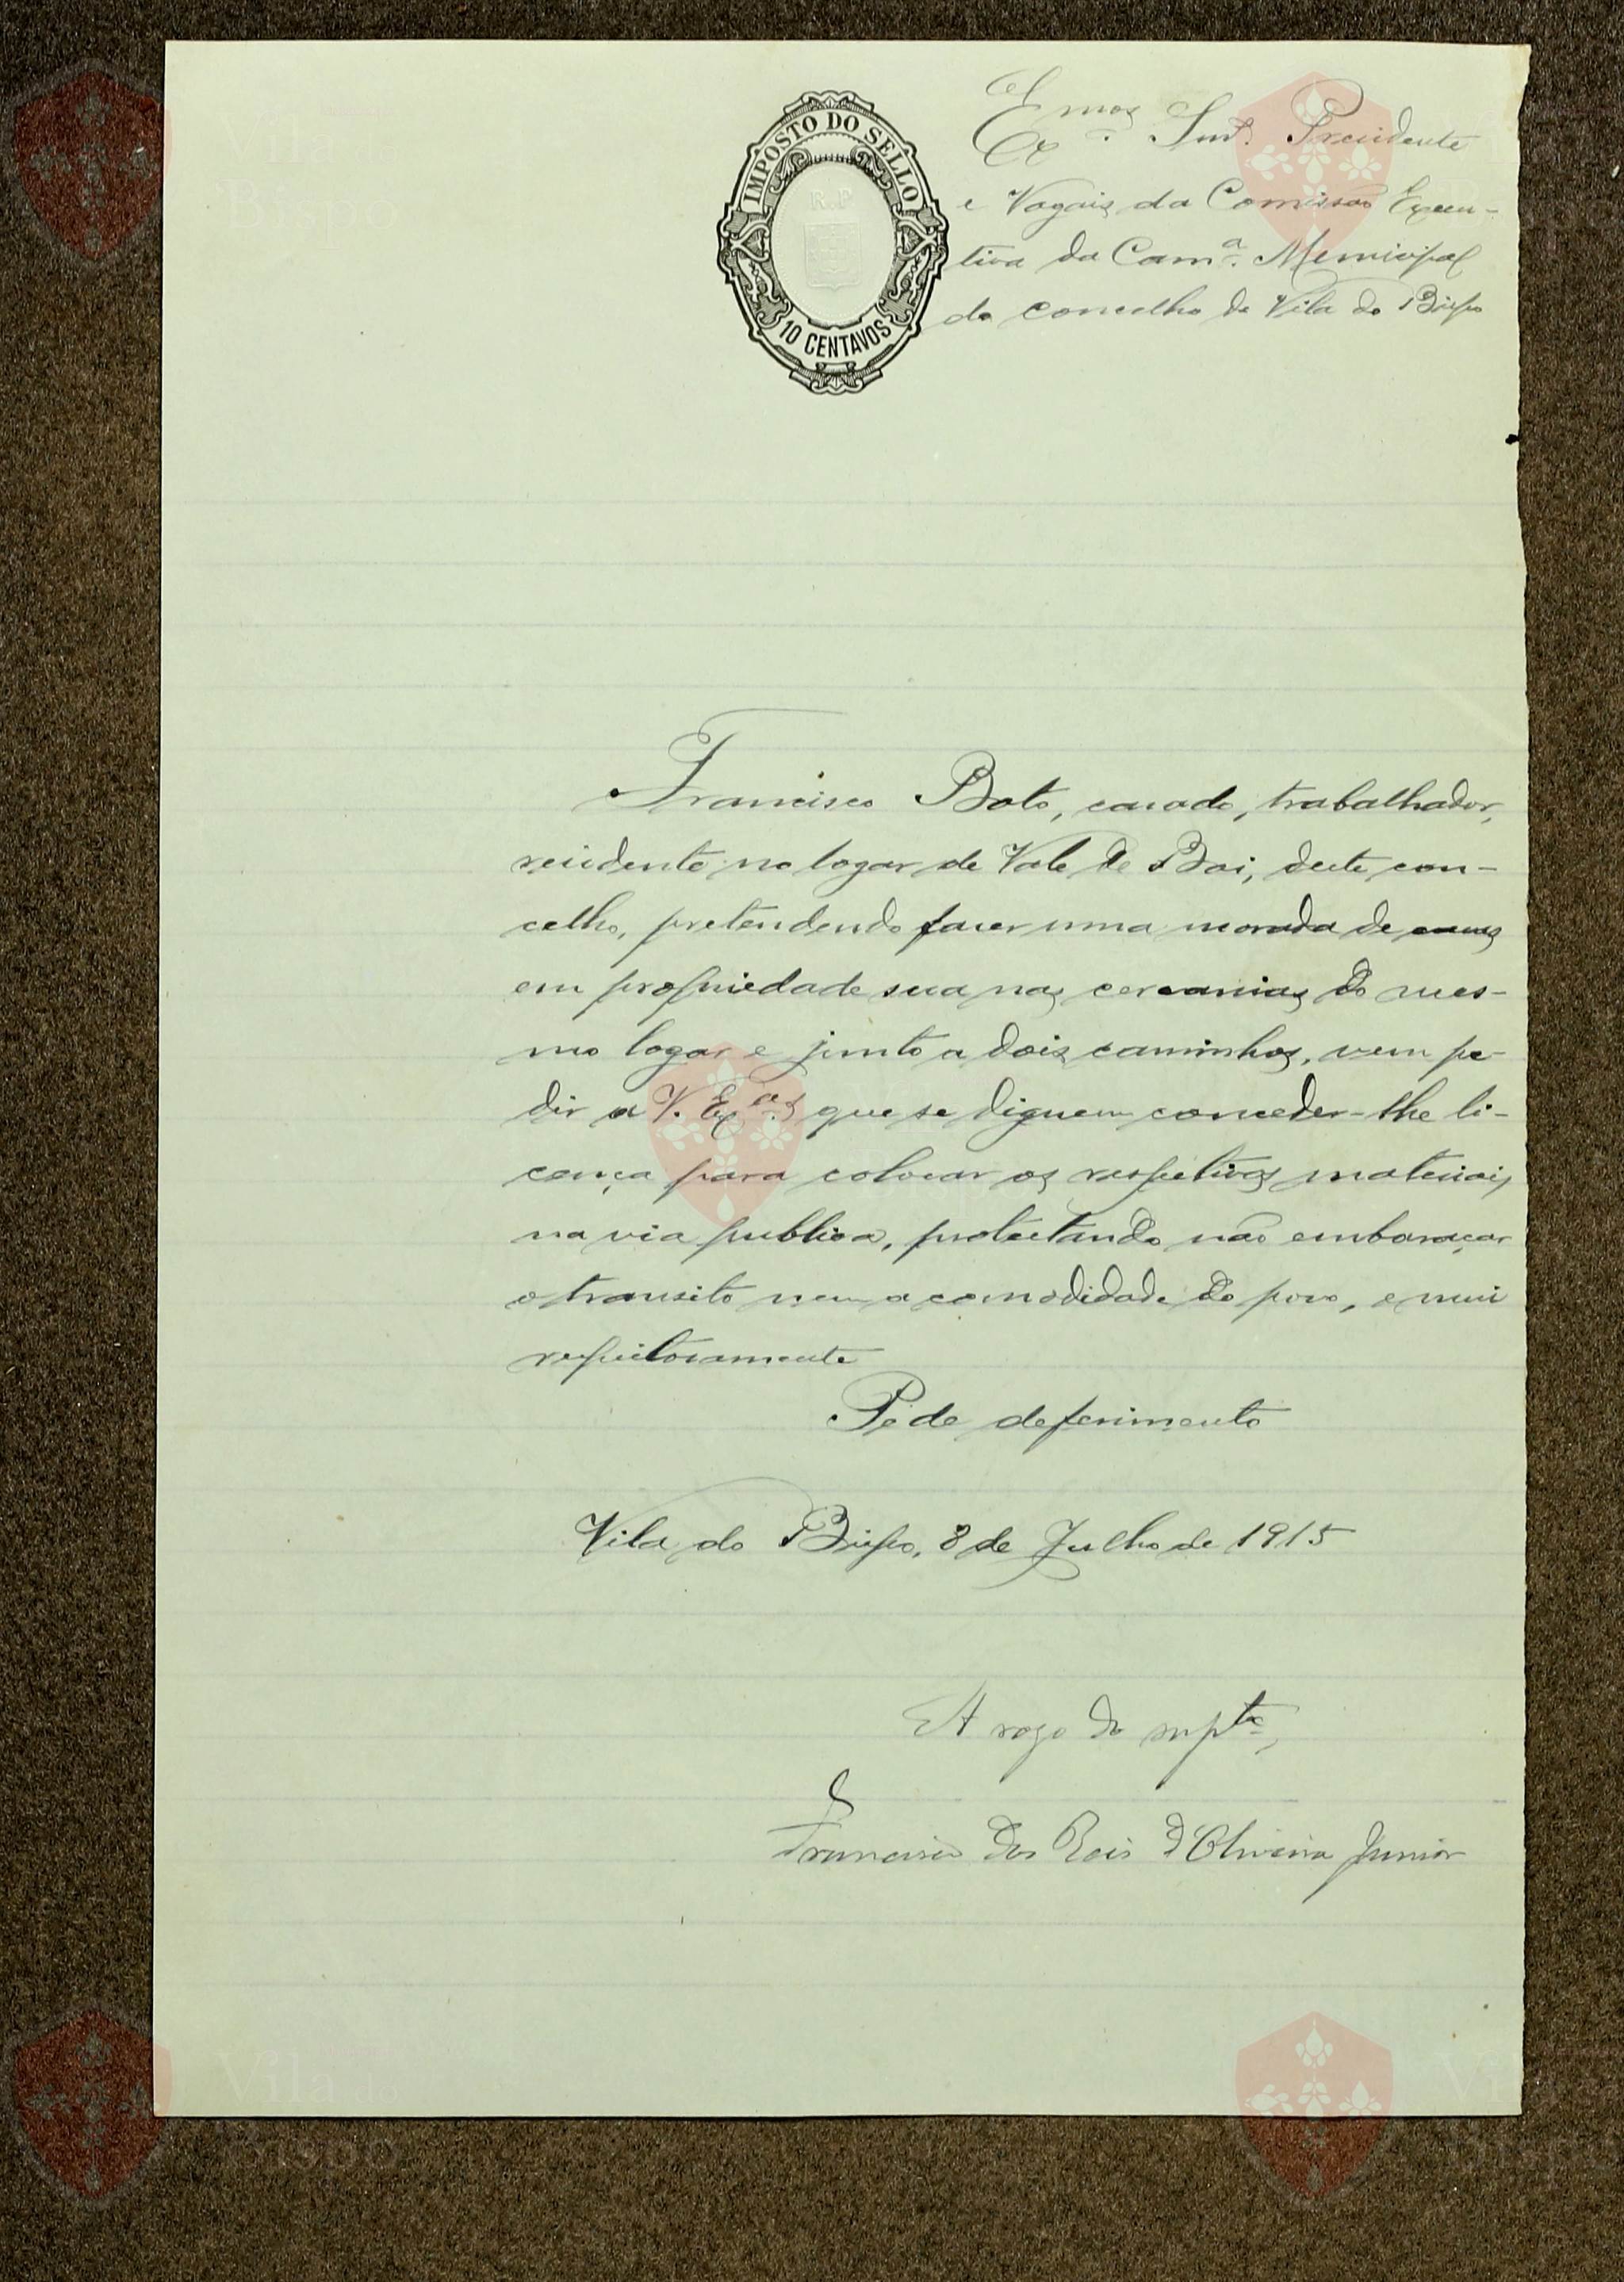 IMPOSTO DO SELLO
R. P
10 CENTAVOS
Exmos. Snrs. Presidente
e Vogais da Comissão Execu-
tiva da Camª. Municipal
do concelho de Vila do Bispo
Francisco Boto, casado, trabalhador,
residente no logar de Vale de Boi, deste con-
celho, pretendendo fazer uma morada de casas
em propriedade sua nas cercanias do mes-
mo logar e junto a dois caminhos, vem pe-
dir a V. Exas. que se dignem conceder-lhe li-
cença para colocar os respetivos materiais
na via publica, protestando não embaraçar
o transito nem a comodidade do povo, e mui
respeitosamente
Pede deferimento
Vila do Bispo, 8 de Julho de 1915
A rogo do supte,
Francisco dos Reis d'Oliveira Junior
Vila do
Bispo